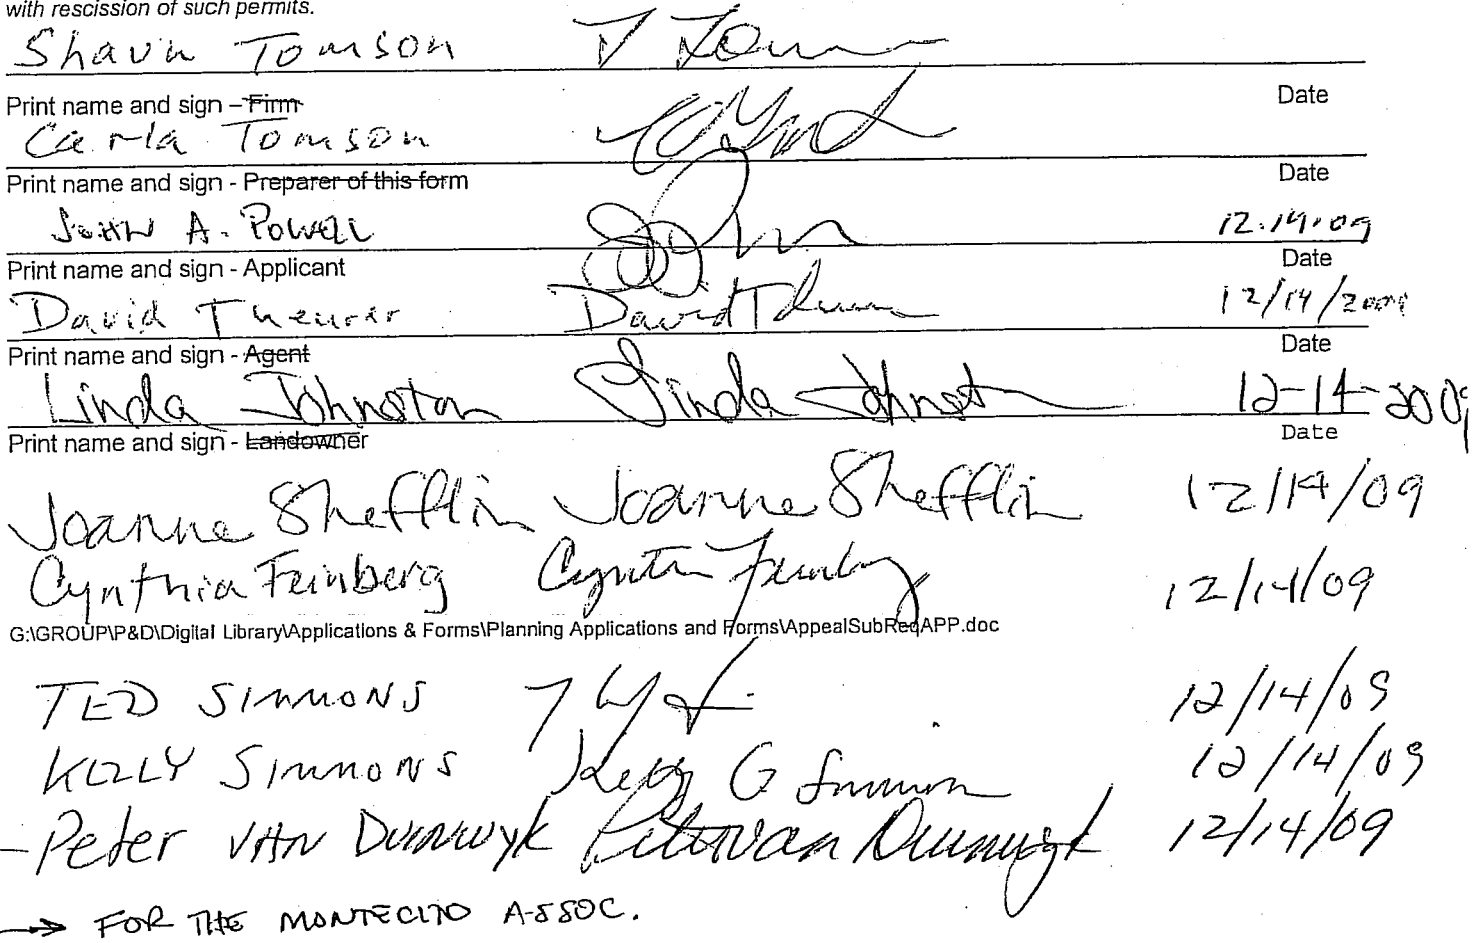 with rescission of such permits.
Shaun Tomson
Print name and sign – Firm Date
Carla Tomson
Print name and sign - Preparer of this form Date
JOHN A. POWELL 12.14.09
Print name and sign - Applicant Date
David Theurer David 12/14/2009
Print name and sign - Agent Date
Linda Johnston Linda Johnston 12-14-2009
Print name and sign - Landowner Date
Joanne Shefflin Joanne Shefflin 12/14/09
Cynthia Feinberg Cynthia Feinberg 12/14/09
G:\GROUP\P&D\Digital Library\Applications & Forms\Planning Applications and Forms\AppealSubReqAPP.doc
TED SIMMONS 12/14/09
KELLY SIMMONS Kelly G Simmons 12/14/09
Peter VAN Duinwyk Peter van Duinwyk 12/14/09
→ FOR THE MONTECITO ASSOC.